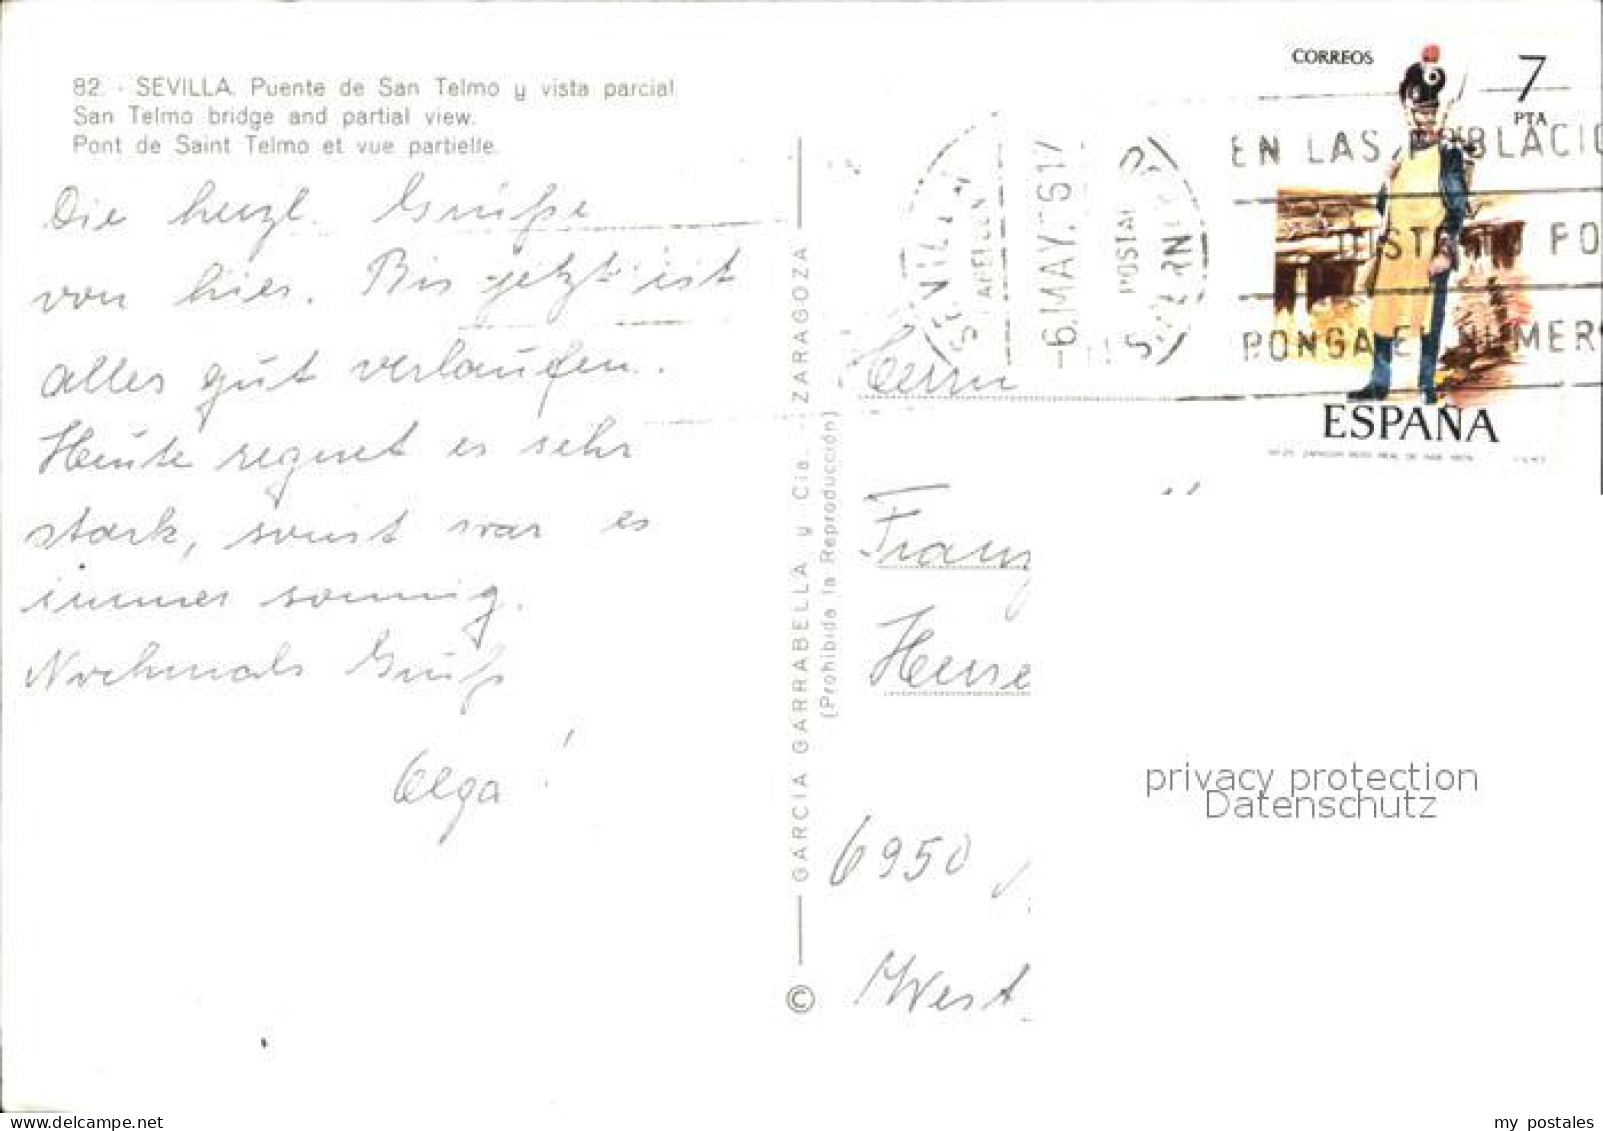 82. - SEVILLA. Puente de San Telmo y vista parcial
San Telmo bridge and partial view.
Pont de Saint Telmo et vue partielle.
Die herzl. Grüße
von hier. Bis jetzt ist
alles gut verlaufen.
Heute regnet es sehr
stark, sonst war es
immer sonnig.
Nochmals Grüße
Olga!
GARCIA GARRABELLA y Cia. - ZARAGOZA
(Prohibida la Reproducción)
©
CORREOS
7
PTA
ESPAÑA
SEVILLA
-6.MAY.76 17
POSTAL
EN LAS POBLACIO
DISTRITO PO
PONGA EL NUMERO
Herrn
Franz
6950
West
privacy protection
Datenschutz
my postales